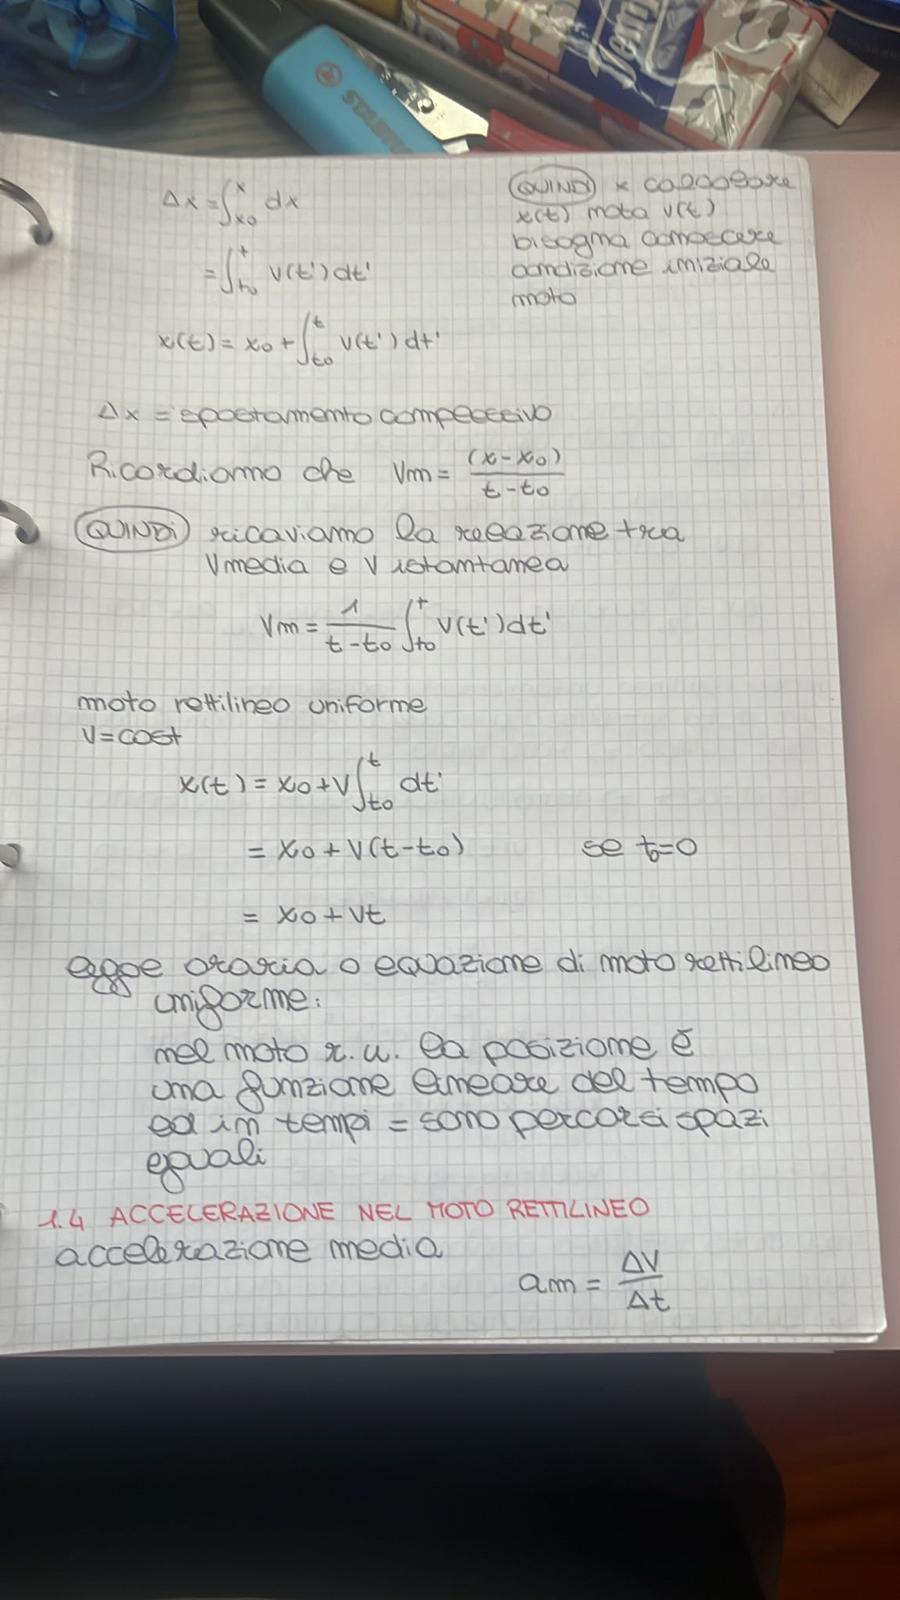 STABILO
Δx = ∫ₓ₀ˣ dx
= ∫ₜ₀ᵗ v(t') dt'
x(t) = x₀ + ∫ₜ₀ᵗ v(t') dt'
QUINDI x calcolare
x(t) nota v(t)
bisogna conoscere
condizione iniziale
moto
Δx = spostamento complessivo
Ricordiamo che Vm = (x-x₀) / t-t₀
QUINDI ricaviamo la relazione tra
Vmedia e V istantanea
Vm = 1 / t-t₀ ∫ₜ₀ᵗ v(t') dt'
moto rettilineo uniforme
V=cost
x(t) = x₀ + V ∫ₜ₀ᵗ dt'
= x₀ + V(t-t₀) se t₀=0
= x₀ + Vt
legge oraria o equazione di moto rettilineo
uniforme:
nel moto r.u. la posizione è
una funzione lineare del tempo
ed in tempi = sono percorsi spazi
eguali
1.4 ACCELERAZIONE NEL MOTO RETTILINEO
accelerazione media
am = ΔV / Δt